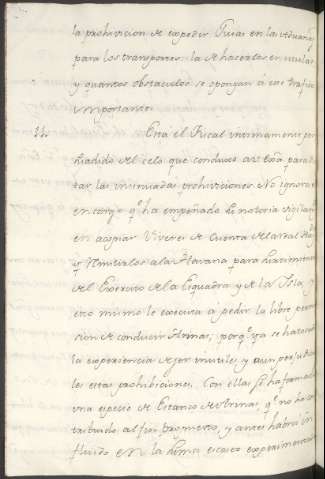 la prohivicion de expedir Guias en las Aduanas
para los transportes: la de hacerlos en mulas
y quantos obstaculos se opongan á ese trafico
importante.
Está el Fiscal intimamente per
suadido del celo que conduce a V.E. para dic
tar las insinuadas prohiviciones. No ignora
en corejo qª ha empeñado su notoria vigilanª
en acopiar Viveres de Cuenta de la Real Haª
y remitirlos a la Havana para los
del Exercito de la Esquadra y de la Isla, y
esto mismo le executa á pedir la libre permi
sion de conducir Arinas, porqª ya se ha tocado
la experiencia de ser inutiles y aun perjudicia
les estas prohibiciones. Con ellas se ha formado
una especie de Estanco de Arinas, qª no ha con
tribuido al fin propuesto, y antes habrá in
fluido en la suma escases experimentada